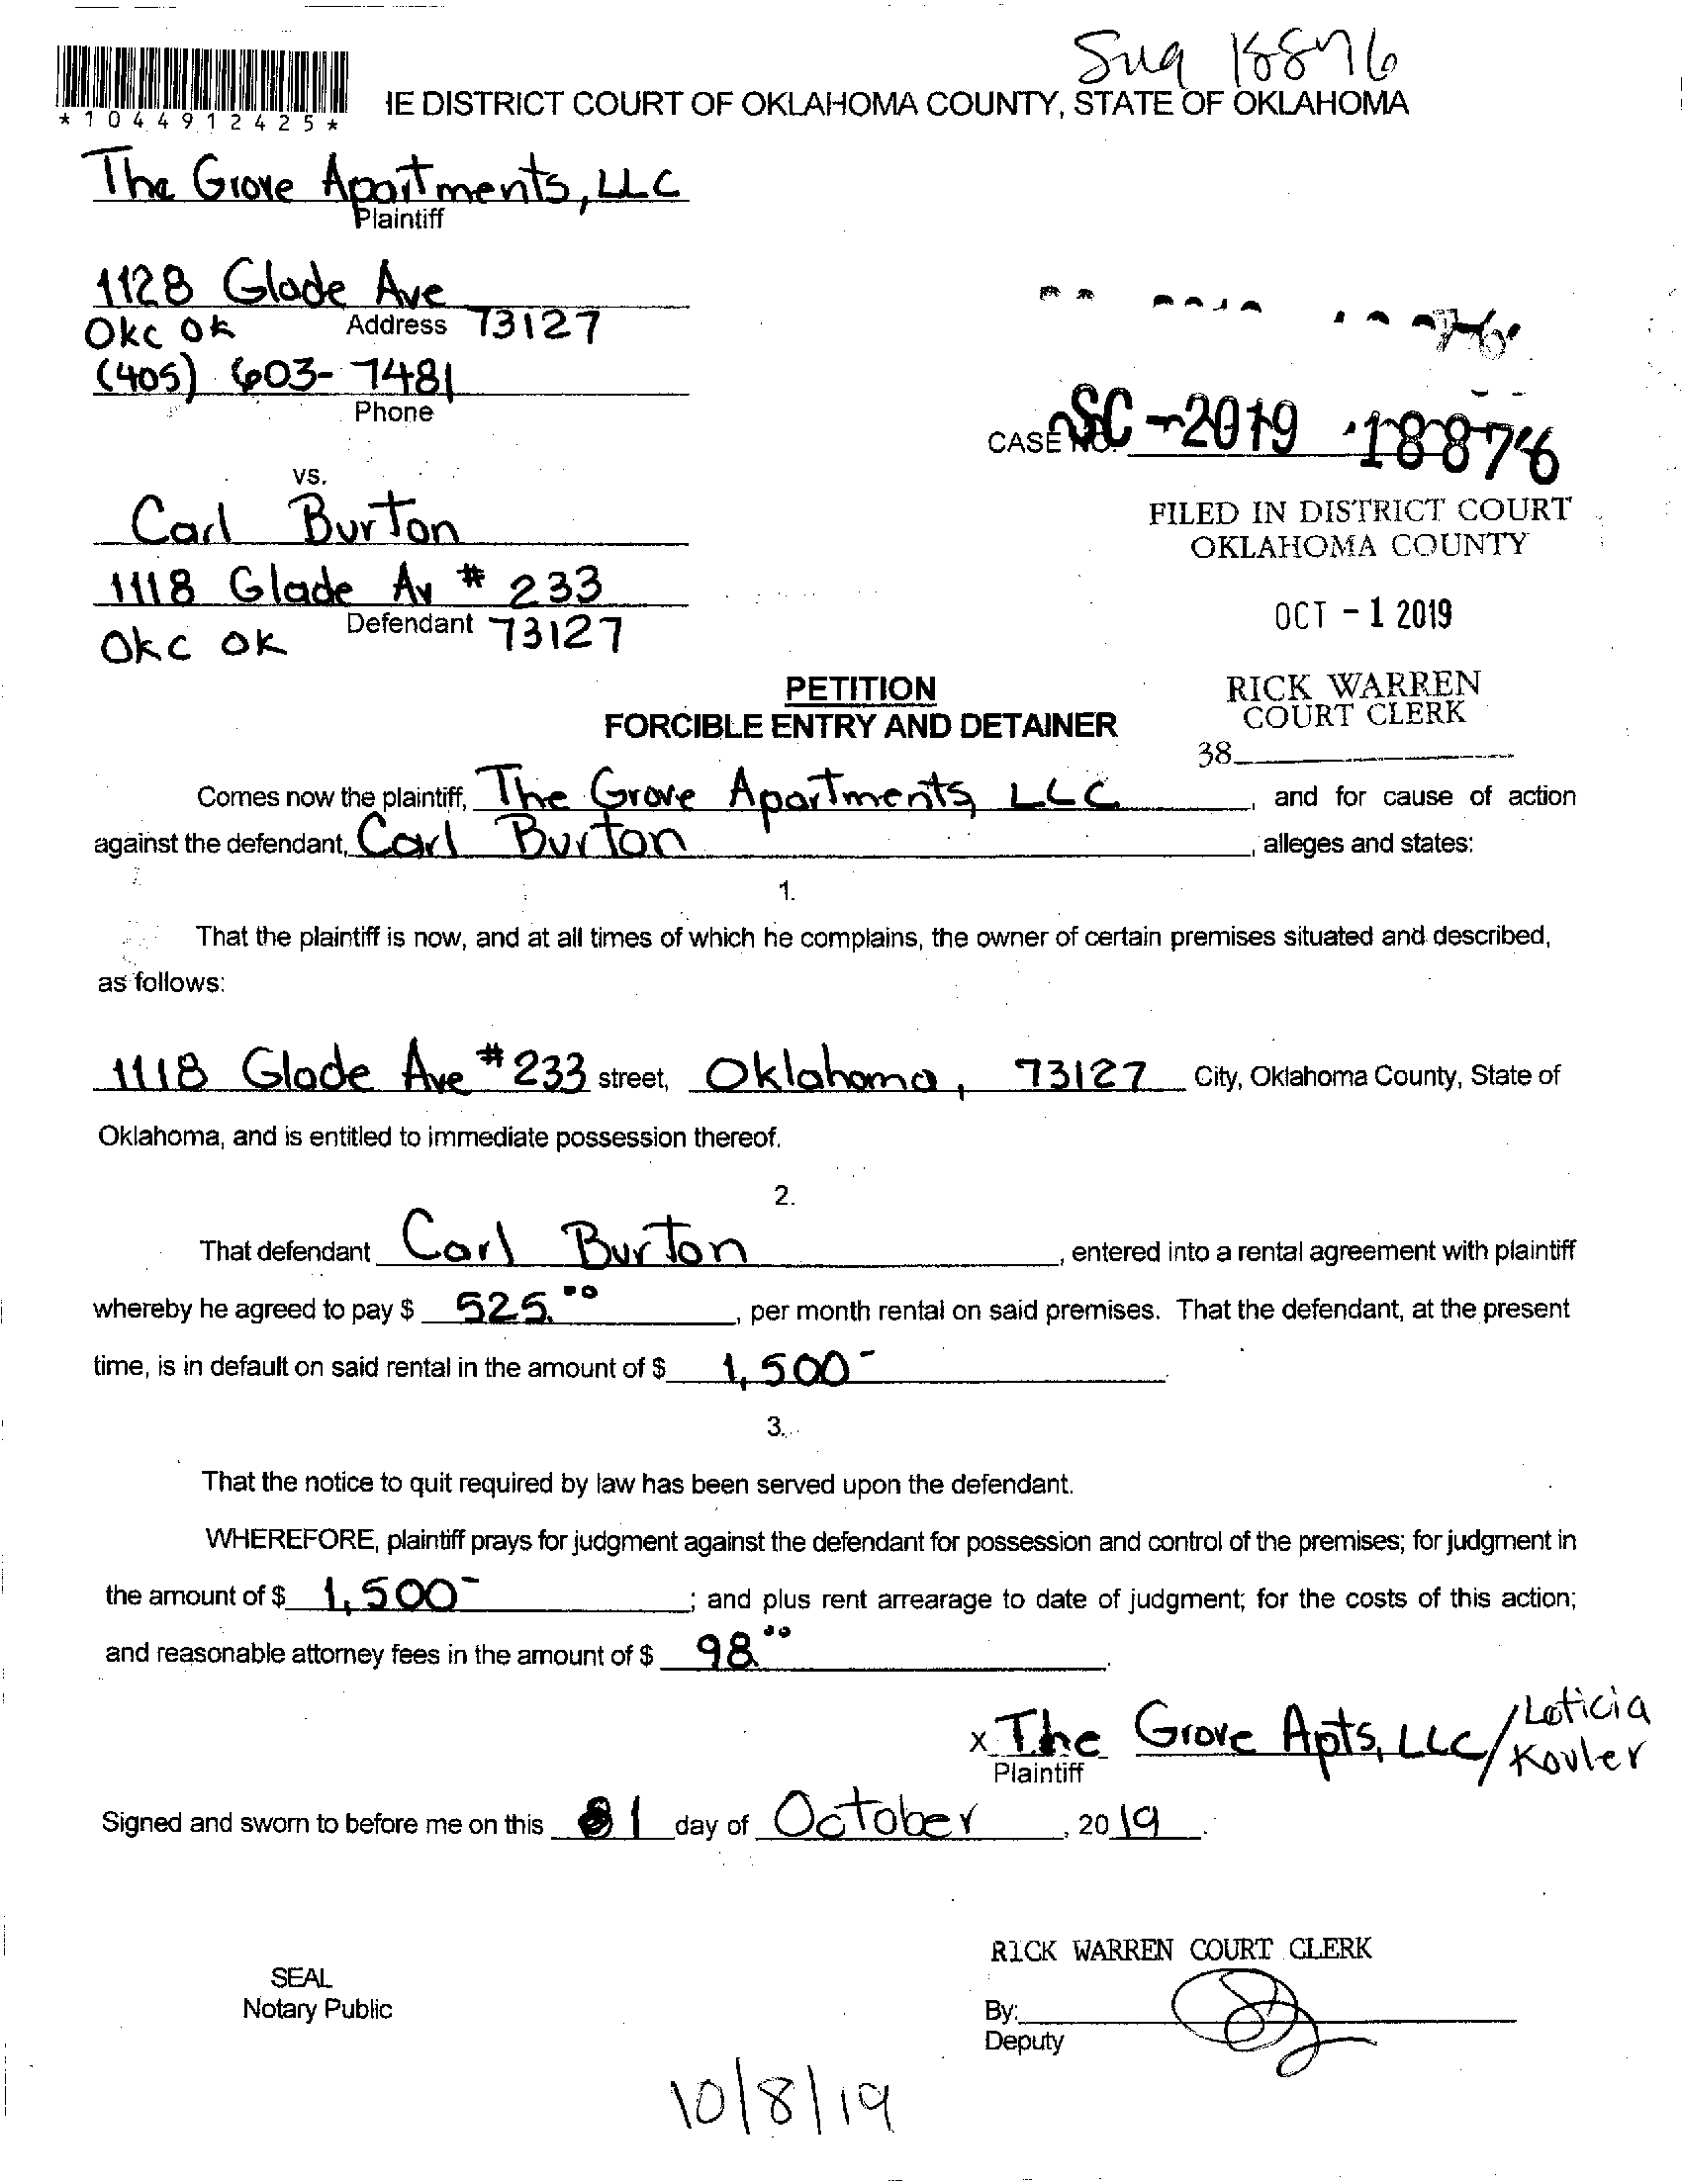 IE DISTRICT COURT OF OKLAHOMA COUNTY, STATE OF OKLAHOMA
*1044912425*
The Grove Apartments, LLC
Plaintiff
1128 Glade Ave
Okc Ok Address 73127
(405) 603-7481
Phone
CASE NO. SC-2019 18876
vs.
Carl Burton
FILED IN DISTRICT COURT
OKLAHOMA COUNTY
1118 Glade Av # 233
OCT - 1 2019
Okc Ok Defendant 73127
PETITION
RICK WARREN
FORCIBLE ENTRY AND DETAINER
COURT CLERK
38
Comes now the plaintiff, The Grove Apartments, LLC, and for cause of action
against the defendant, Carl Burton, alleges and states:
1.
That the plaintiff is now, and at all times of which he complains, the owner of certain premises situated and described,
as follows:
1118 Glade Ave #233 street, Oklahoma, 73127 City, Oklahoma County, State of
Oklahoma, and is entitled to immediate possession thereof.
2.
That defendant Carl Burton, entered into a rental agreement with plaintiff
whereby he agreed to pay $ 525.00, per month rental on said premises. That the defendant, at the present
time, is in default on said rental in the amount of $ 1,500-
3.
That the notice to quit required by law has been served upon the defendant.
WHEREFORE, plaintiff prays for judgment against the defendant for possession and control of the premises; for judgment in
the amount of $ 1,500-; and plus rent arrearage to date of judgment; for the costs of this action;
and reasonable attorney fees in the amount of $ 98.00.
x The Grove Apts, LLC/ Leticia Kovler
Plaintiff
Signed and sworn to before me on this 1 day of October, 2019.
RICK WARREN COURT CLERK
SEAL
Notary Public
By:
Deputy
10/8/19